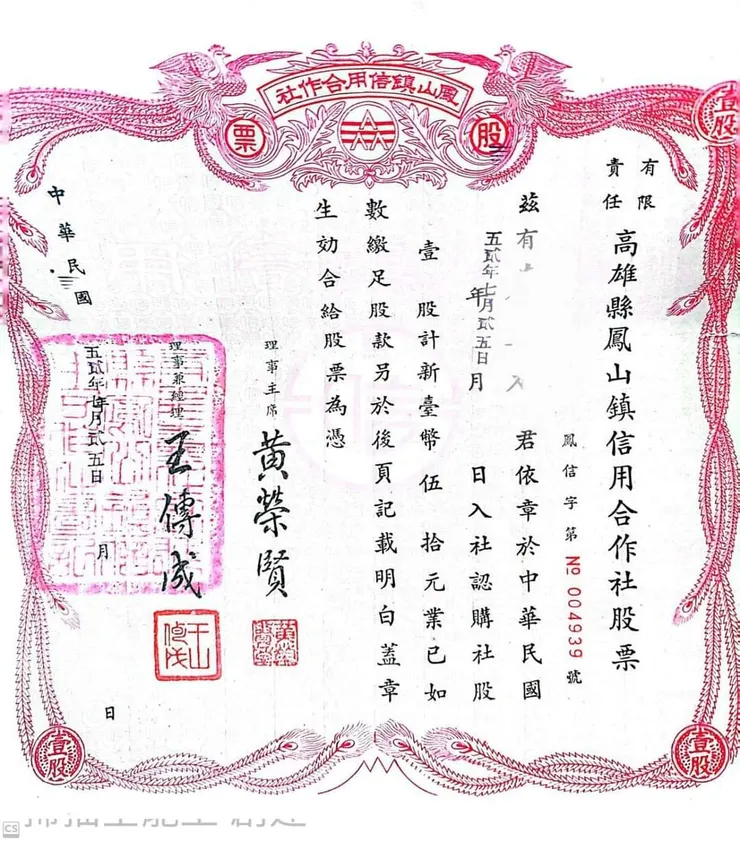 鳳山鎮信用合作社
股票
壹股
有限責任高雄縣鳳山鎮信用合作社股票
鳳信字第 № 004939 號
茲有
君依章於中華民國
五貳年七月貳五日
年 月 日入社認購社股
壹股計新臺幣伍拾元業已如
數繳足股款另於後頁記載明白蓋章
生効合給股票為憑
理事主席 黃榮賢
理事兼經理 王傳成
中華民國
五貳年七月貳五日
年 月 日
壹股
壹股
CS